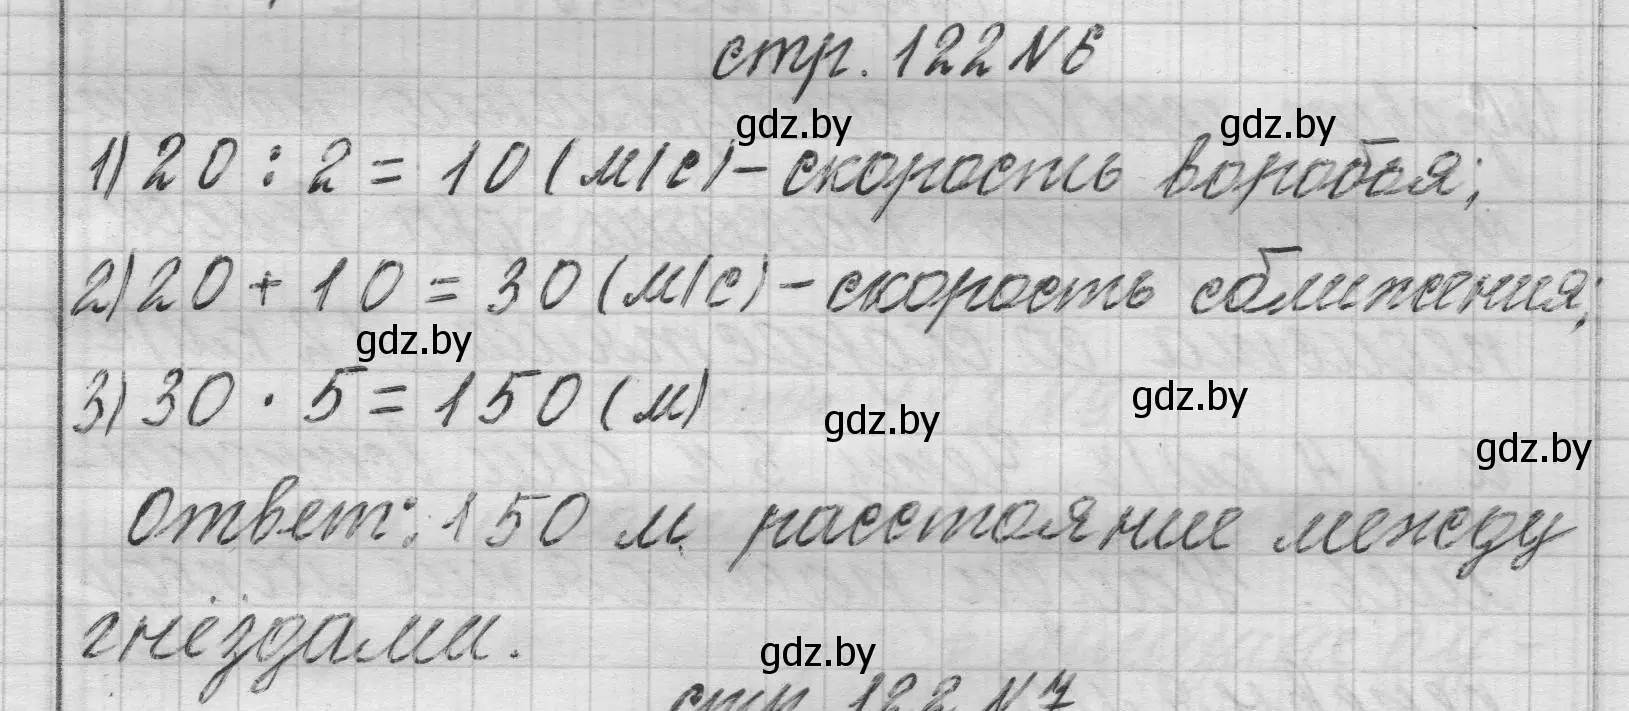 стр. 122 N 6
gdz.by gdz.by
1) 20 : 2 = 10 (м/с) - скорость воробья;
2) 20 + 10 = 30 (м/с) - скорость сближения;
gdz.by
3) 30 · 5 = 150 (м)
gdz.by gdz.by gdz.by
Ответ: 150 м расстояние между
гнёздами.
gdz.by
стр. 122 N 7